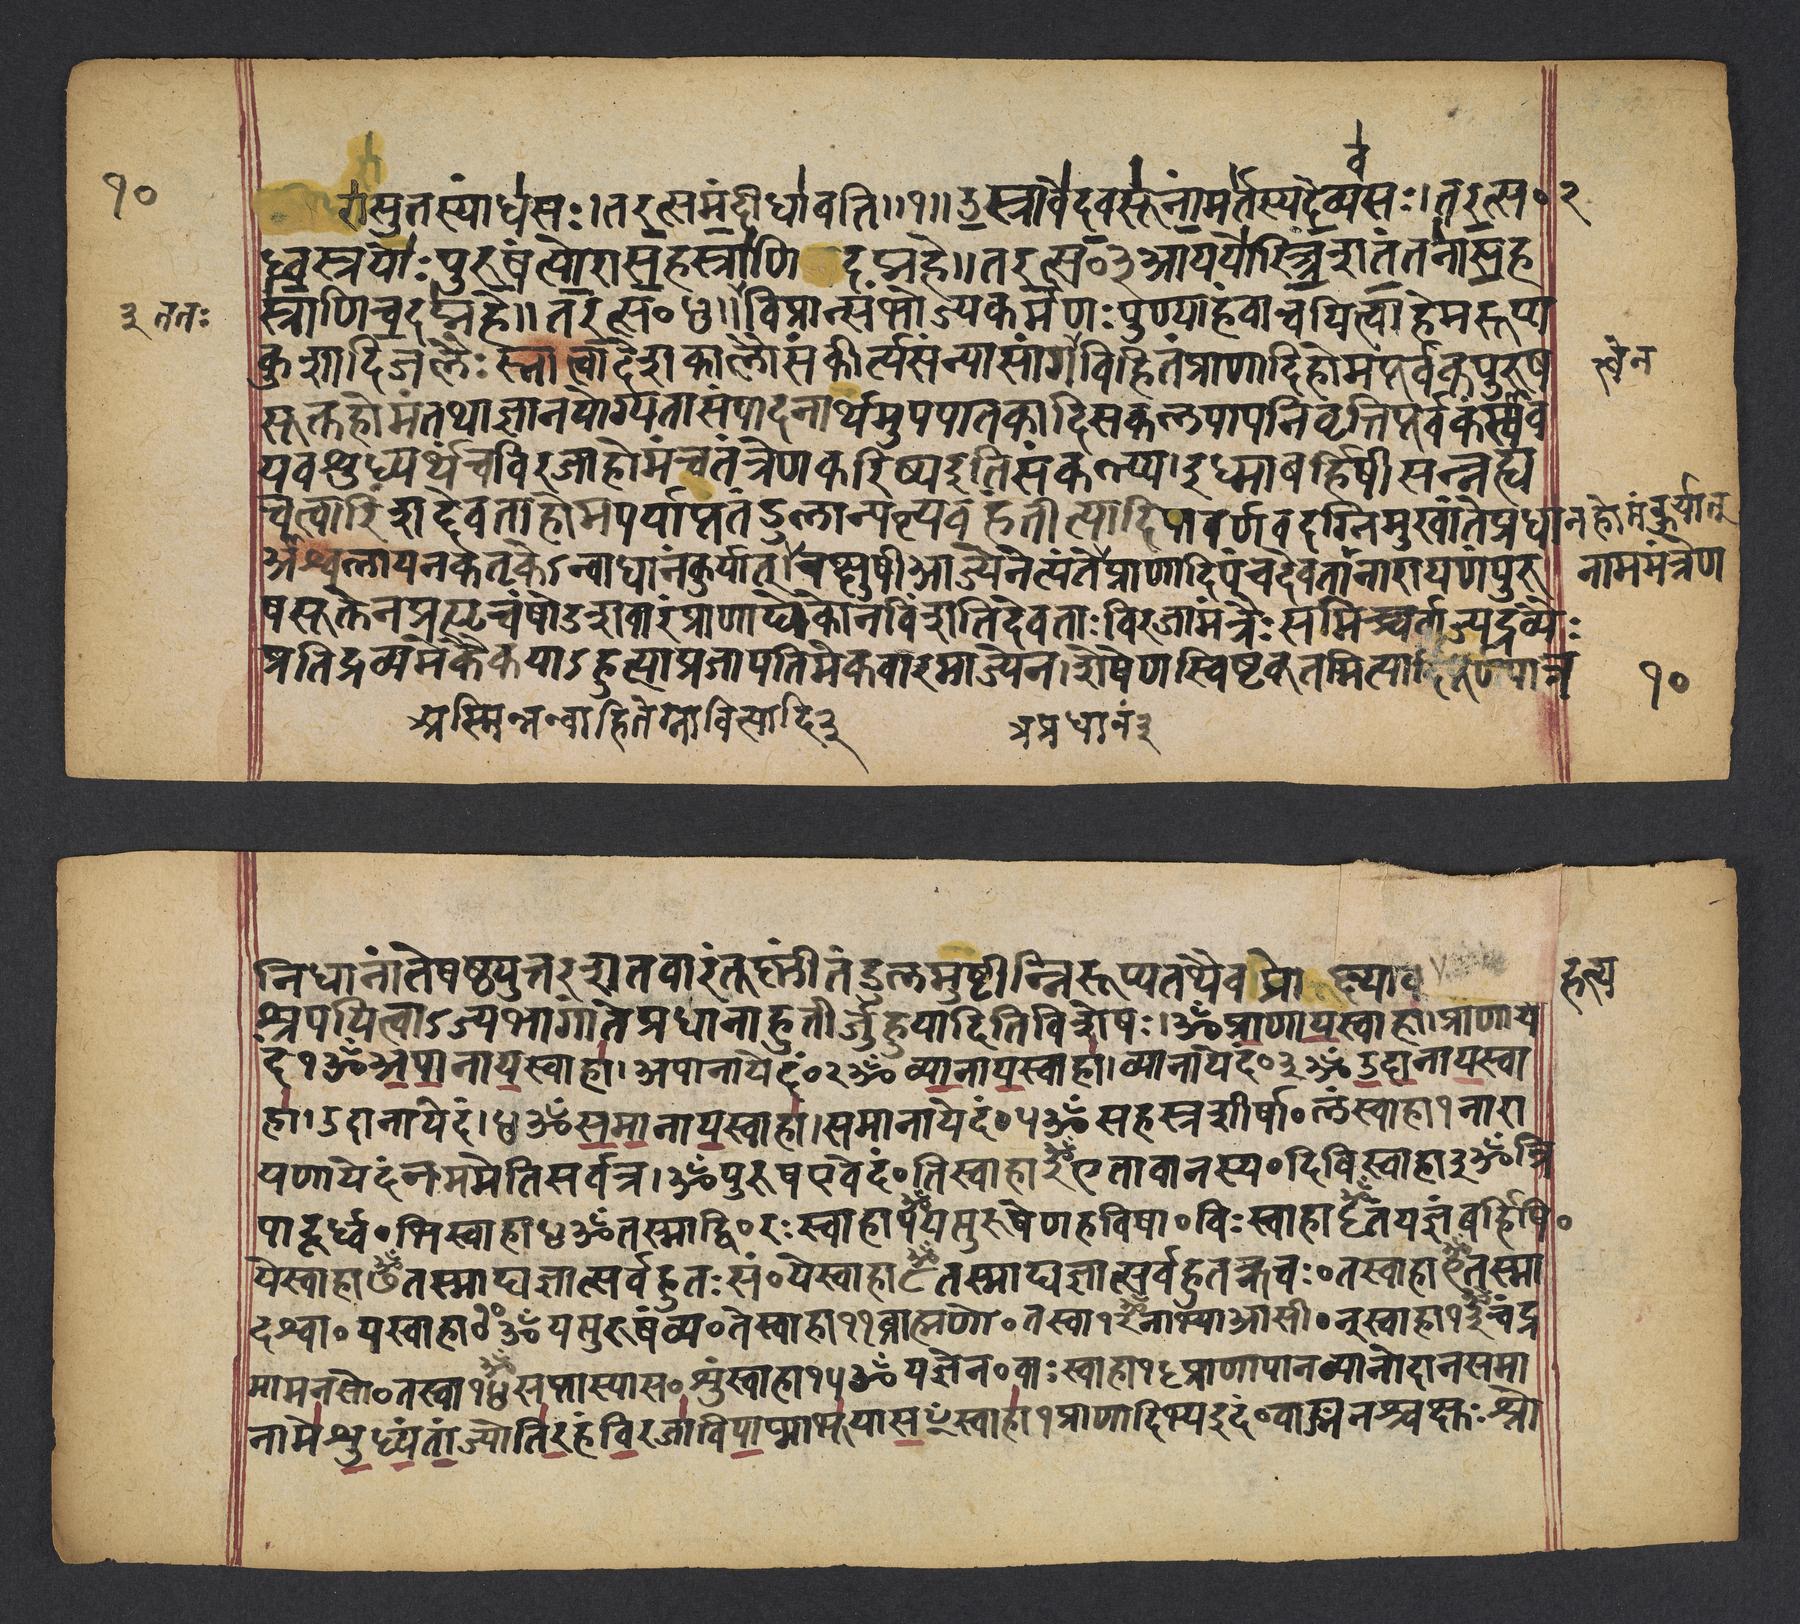 १०
रासुतस्यांधसः। तरत्समंदीधावति॥१॥ उस्रावेदवसूनांमर्तस्यदेव्यसः। तरत्स० २
व
ध्वस्रयोः पुरुषंत्योरासहस्राणि दद्महे॥ तरत्स० ३ आययोस्त्रिंशतंतनासह
३ ततः
स्राणिचदद्महे॥ तरत्स० ४॥ विप्रान्संभोज्यकर्मणः पुण्याहंवाचयित्वाहेमरूप्य
कुशादिजलैः स्नात्वादेशकालौसंकीर्त्यसंन्यासांगविहितंप्राणादिहोमपूर्वकंपुरुष
त्वेन
सूक्तहोमंतथाज्ञानयोग्यतासंपादनार्थमुपपातकादिसकलपापनिवृत्तिपूर्वकंसर्वाव
यवशुध्यर्थंचविरजाहोमंचतंत्रेणकरिष्यइतिसंकल्प्य। इध्माबर्हिषीसन्नह्य
चत्वारिंशद्देवताहोमपर्याप्ततंडुलान्यत्यवहंतीत्यादि वर्णवदग्निमुखांतेप्रधानहोमंकुर्यात्
अश्वलायनकर्तृकेऽन्वाधानंकुर्यात्। चक्षुषीआज्येनेत्यंतेप्राणादिपंचदेवतांनारायणंपुरु
नाममंत्रेण
षसूक्तेनप्रत्यृचंषोडशवारंप्राणाद्येकोनविंशतिदेवताः विरजामंत्रैः समिच्चर्वाज्यद्रव्यैः
प्रतिद्रव्यमेकैकयाऽहुत्याप्रजापतिमेकवारमाज्येन। शेषेणस्विष्टकृतमित्यादि
१०
अस्मिन्नन्वाहितेग्नावित्यादि ३
अप्रधानं ३
निधानांतेषष्ठ्युत्तरशतवारंतूष्णींतंडुलमुष्टीन्निरूप्यतथैवप्रो
हत्य
श्रपयित्वाऽज्यभागांतेप्रधानाहुतीर्जुहुयादितिविशेषः। ॐप्राणायस्वाहा। प्राणाये
दं १ ॐअपानायस्वाहा। अपानायेदं० २ ॐव्यानायस्वाहा। व्यानायेदं० ३ ॐउदानायस्वा
हा। उदानायेदं। ४ ॐसमानायस्वाहा। समानायेदं० ५ ॐसहस्रशीर्षा० लंस्वाहा १ नारा
यणायेदंनममेतिसर्वत्र। ॐपुरुषएवेदं० तिस्वाहा २ ॐएतावानस्य० दिविस्वाहा ३ ॐत्रि
पादूर्ध्व० भिस्वाहा ४ ॐतस्माद्वि० रः स्वाहा ५ ॐयत्पुरुषेणहविषा० विः स्वाहा ६ ॐतंयज्ञंबर्हिषि०
येस्वाहा ७ ॐतस्माद्यज्ञात्सर्वहुतः सं० येस्वाहा ८ ॐतस्माद्यज्ञात्सर्वहुतऋचः० तस्वाहा ९ ॐतस्मा
दश्वा० यस्वाहा १० ॐयत्पुरुषंव्य० तेस्वाहा ११ ब्राह्मणो० तस्वा १२ ॐनाभ्याआसी० न्स्वाहा १३ ॐचंद्र
मामनसो० तस्वा १४ ॐसप्तास्यास० शुंस्वाहा १५ ॐयज्ञेन० वाः स्वाहा १६ प्राणापानव्यानोदानसमा
नामेशुध्यंतांज्योतिरहंविरजाविपाप्माभूयासꣳस्वाहा १ प्राणादिभ्यइदं० वाङ्मनश्चक्षुः श्रो